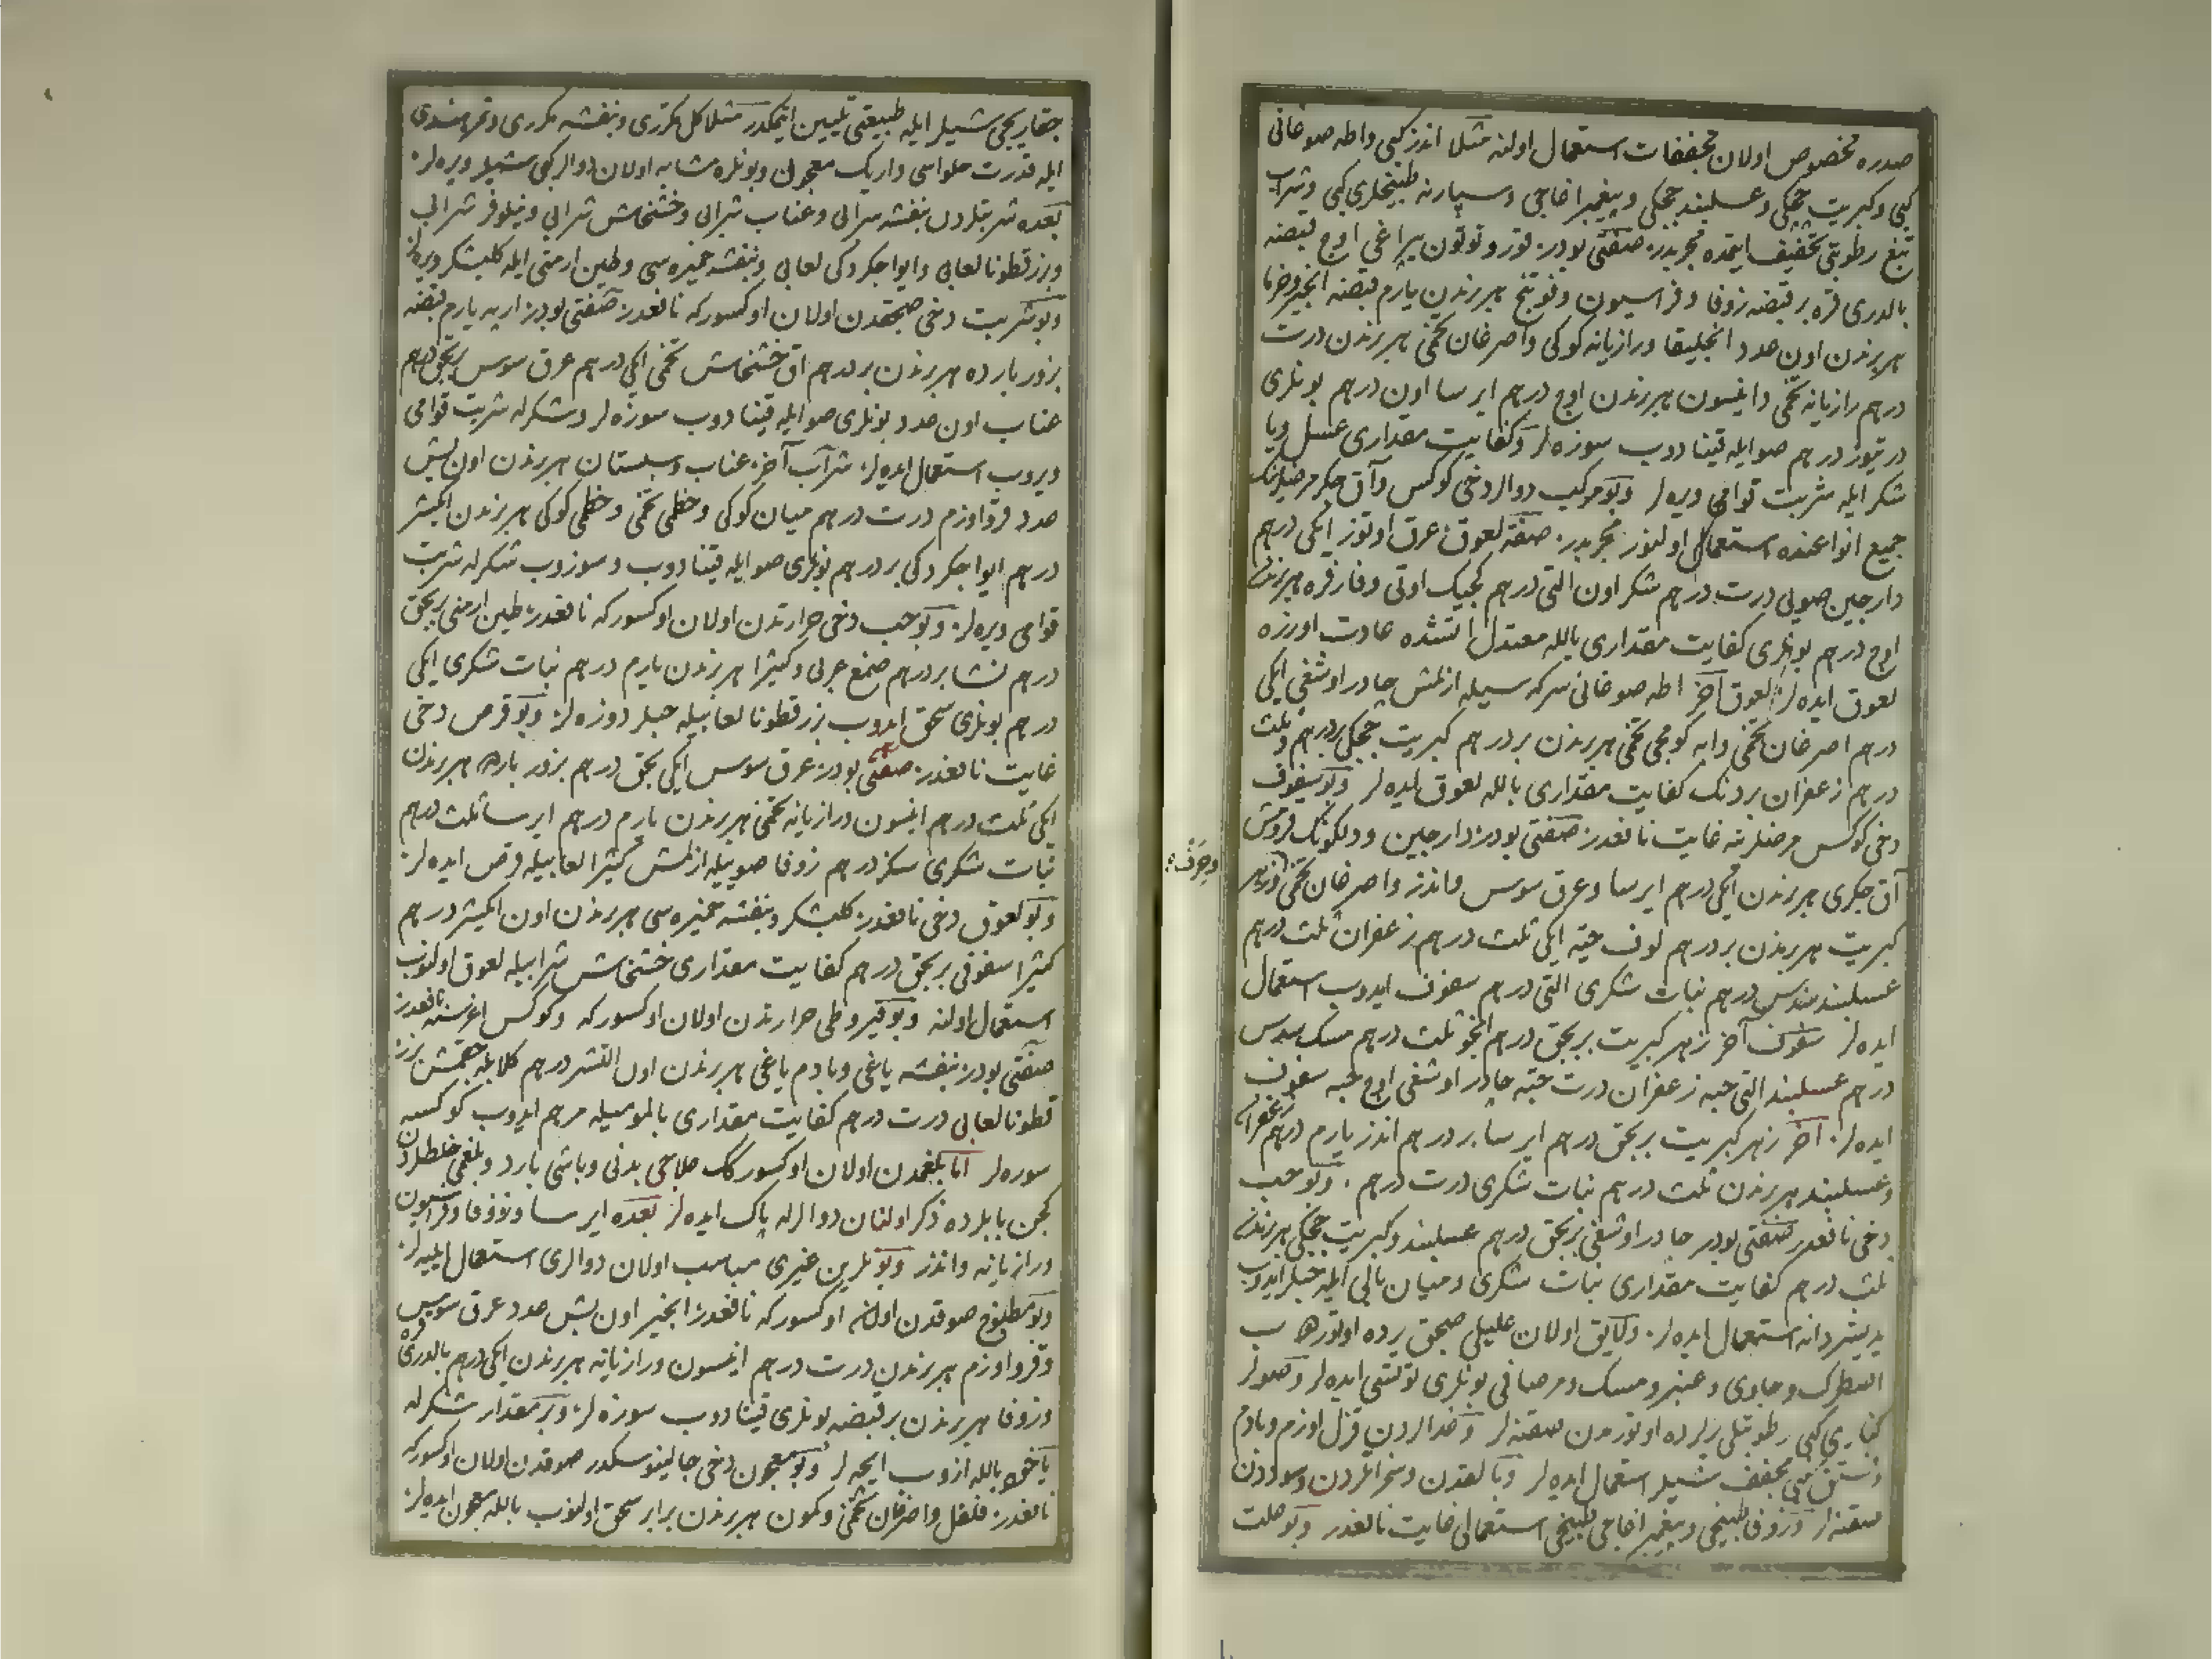 صدره مخصوص اولان مجففات استعمال اولنه مثلا اندز کبی واطه صوغانی
کبی وکبریت چچکی وعسلبند چچکی وپیغمبر اغاجی وسپارنه طبیخلری کبی وشراب
تبغ رطوبتی تجفیف ایتمده مجربدر صنعتی بودر توتون یپراغی اوچ قبضه
بالدری قره بر قبضه زوفا وفراسیون وفوتنج هر برندن یارم قبضه انجیر وخرما
هر برندن اون عدد انجلیقا ورازیانه کوکی واصرغان تخمی هر برندن درت
درهم رازیانه تخمی وانیسون هر برندن اوچ درهم ایرسا اون درهم بونلری
درتیوز درهم صو ایله قینادوب سوزه لر وکفایت مقداری عسل ویا
شکر ایله شربت قوامی ویره لر وبو مرکب دوالر دخی کوکس وآق جکر مرضلرینک
جمیع انواعنده استعمالی اولنور مجربدر صفة لعوق عرق اوتوز ایکی درهم
دارچین صویی درت درهم شکر اون التی درهم کجیک اوتی وفارفره هر برندن
اوچ درهم بونلری کفایت مقداری باللە معتدل آتشده عادت اوزره
لعوق ایده لر لعوق آخر اطه صوغانی سرکه سیله ازلمش چادر اوشغی ایکی
درهم اصرغان تخمی وابه کومجی تخمی هر برندن بر درهم کبریت چچکی بر درهم وثلث
درهم زعفران بر دنک کفایت مقداری بالله لعوق ایده لر وبو سفوف
دخی کوکس مرضلرینه غایت نافعدر صنعتی بودر دارچین ودلکونک قورومش
آق جکری هر برندن ایکی درهم ایرسا وعرق سوس واندز واصرغان تخمی وزهر
کبریت هر برندن بر درهم لوف حیه ایکی ثلث درهم زعفران ثلث درهم
عسلبند سدس درهم نبات شکری التی درهم سفوف ایدوب استعمال
ایده لر سفوف آخر زهر کبریت بر بچق درهم انجو ثلث درهم مسک سدس
درهم عسلبند التی حبه زعفران درت حبه چادر اوشغی اوچ حبه سفوف
ایده لر آخر زهر کبریت بر بچق درهم ایرسا بر درهم اندز یارم درهم زعفران
وعسلبند هر برندن ثلث درهم نبات شکری درت درهم وبو حب
دخی نافعدر صنعتی بودر چادر اوشغی بر بچق درهم عسلبند وکبریت چچکی هر برندن
ثلث درهم کفایت مقداری نبات شکری ومیان بالی ایله حبلر ایدوب
یدیشر دانه استعمال ایده لر ولایق اولان علیلی صیجق یرده اوتوره
اسطرک وجاوی وعنبر ومسک ومرصافی بونلری توتسی ایده لر وصولر
کناری کبی رطوبتلی یرلرده اوتورمدن صقنه لر وغدالردن قزل اوزم وبادام
وفستق کبی مجفف شیلر استعمال ایده لر وبالقدن وسبزه لردن وسوددن
صقنه لر وزوفا طبیخی وپیغمبر اغاجی طبیخی استعمالی غایت نافعدر وبو علت
وجَرَف
جقاریجی شیلر ایله طبیعتی تلیین ایتمکدر مثلا کل مکرری وبنفشه مکرری وتمر هندی
ایله قدرت حلواسی واریک معجون وبونلره مشابه اولان دوالر کبی شیلر ویره لر
بعده شربتلردن بنفشه شرابی وعناب شرابی وخشخاش شرابی ونیلوفر شرابی
وبزر قطونا لعابی وایوا چکردکی لعابی وبنفشه خمیره سی وطین ارمنی ایله کلبشکر ویره لر
وبو شربت دخی صیجقدن اولان اوکسورکه نافعدر صنعتی بودر ارپه یارم قبضه
بزور بارده هر برندن بر درهم آق خشخاش تخمی ایکی درهم عرق سوس بر بچق درهم
عناب اون عدد بونلری صو ایله قینادوب سوزه لر وشکرله شربت قوامی
ویروب استعمال ایده لر شراب آخر عناب وسبستان هر برندن اون بش
عدد قرو اوزم درت درهم میان کوکی وخطمی تخمی وخطمی کوکی هر برندن ایکیشر
درهم ایوا چکردکی بر درهم بونلری صو ایله قینادوب وسوزوب شکرله شربت
قوامی ویره لر وبو حب دخی حرارتدن اولان اوکسورکه نافعدر طین ارمنی بر بچق
درهم نشا بر درهم صمغ عربی وکثیرا هر برندن یارم درهم نبات شکری ایکی
درهم بونلری سحق ایدوب بزر قطونا لعابیله حبلر دوزه لر وبو قرص دخی
غایت نافعدر صنعتی بودر عرق سوس ایکی بچق درهم بزور بارده هر برندن
ایکی ثلث درهم انیسون ورازیانه تخمی هر برندن یارم درهم ایرسا ثلث درهم
نبات شکری سکز درهم زوفا صوییله ازلمش کثیرا لعابیله قرص ایده لر
وبو لعوق دخی نافعدر کلبشکر وبنفشه خمیره سی هر برندن اون ایکیشر درهم
کثیرا سفوفی بر بچق درهم کفایت مقداری خشخاش شرابیله لعوق اولنوب
استعمال اولنه وبو قیروطی حرارتدن اولان اوکسورکه وکوکس اغریسنه نافعدر
صنعتی بودر بنفشه یاغی وبادام یاغی هر برندن اون التیشر درهم کلابله چقمش بزر
قطونا لعابی درت درهم کفایت مقداری بالمومیله مرهم ایدوب کوکسه
سوره لر اما بلغمدن اولان اوکسورکک علاجی بدنی وباشی بارد وبلغمی خلطلردن
کچن بابلرده ذکر اولنان دوالرله پاک ایده لر بعده ایرسا وزوفا وفراسیون
ورازیانه واندز وبونلرین غیری مناسب اولان دوالری استعمال ایلیه لر
وبو مطبوخ صوقدن اولان اوکسورکه نافعدر انجیر اون بش عدد عرق سوس
وقرو اوزم هر برندن درت درهم انیسون ورازیانه هر برندن ایکی درهم بالدری قره
وزوفا هر برندن بر قبضه بونلری قینادوب سوزه لر وبر مقدار شکرله
یاخود بالله ازوب ایچه لر وبو معجون دخی جالینوسکدر صوقدن اولان اوکسورکه
نافعدر فلفل واصرغان تخمی وکمون هر برندن برابر سحق اولنوب بالله معجون ایده لر